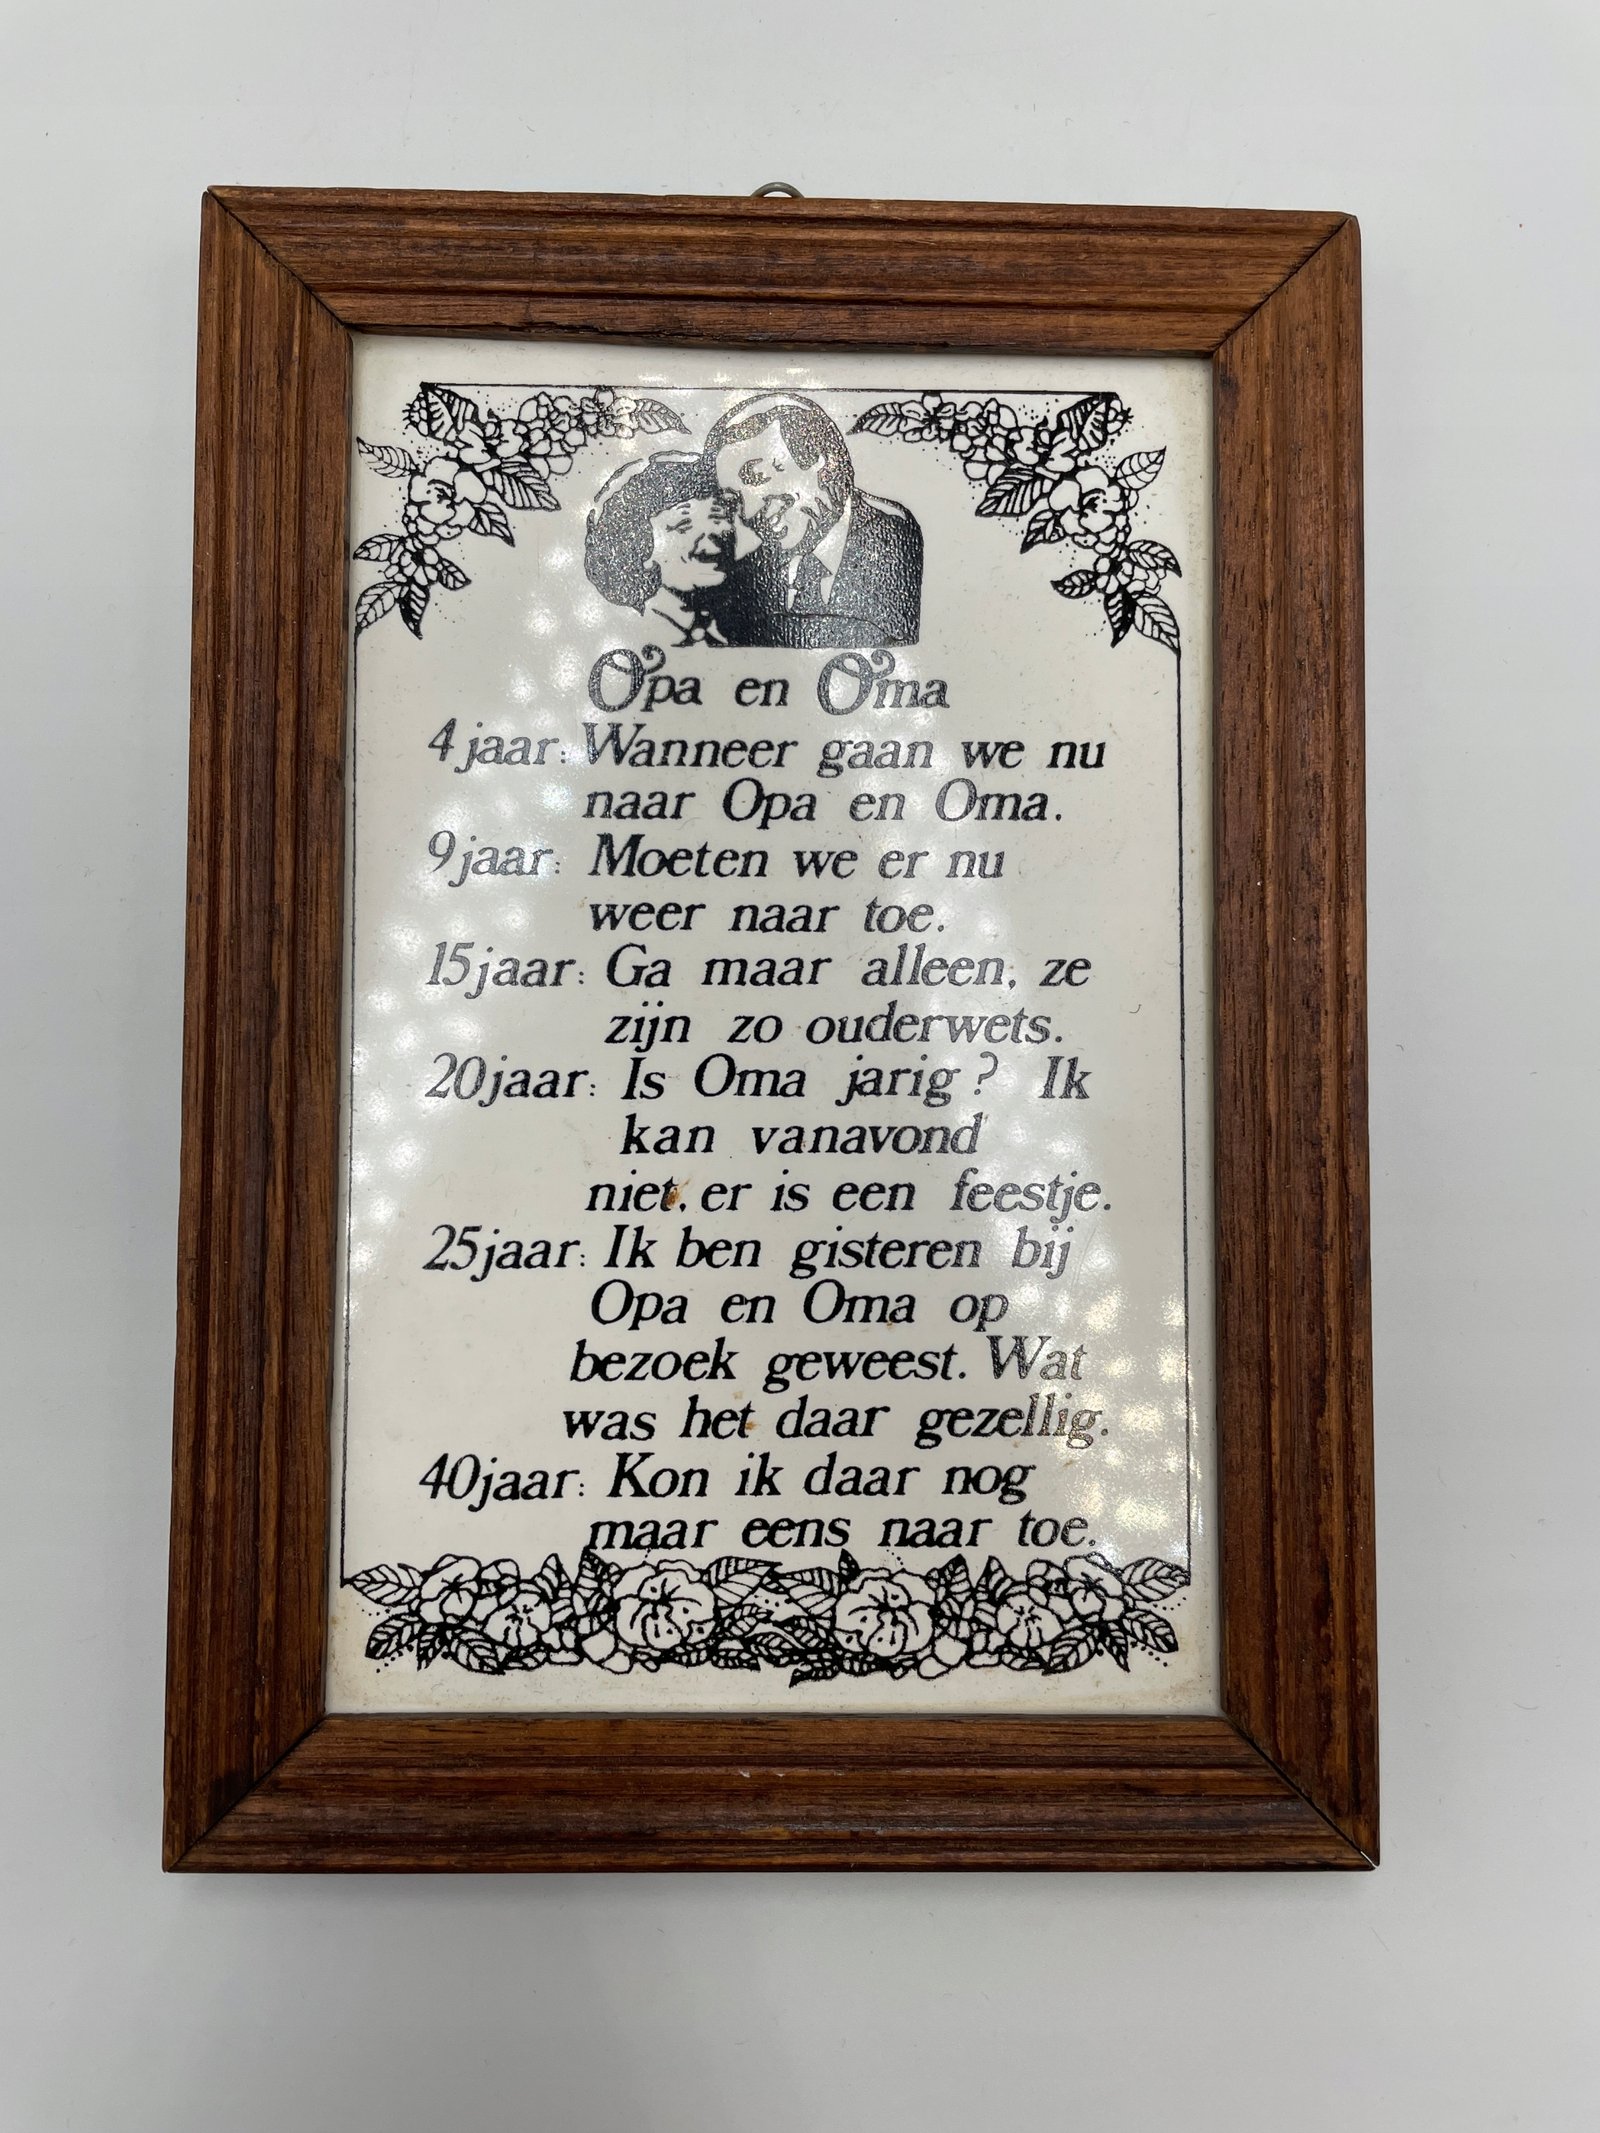 Opa en Oma
4 jaar: Wanneer gaan we nu
naar Opa en Oma.
9 jaar: Moeten we er nu
weer naar toe.
15 jaar: Ga maar alleen, ze
zijn zo ouderwets.
20 jaar: Is Oma jarig? Ik
kan vanavond
niet, er is een feestje.
25 jaar: Ik ben gisteren bij
Opa en Oma op
bezoek geweest. Wat
was het daar gezellig.
40 jaar: Kon ik daar nog
maar eens naar toe.